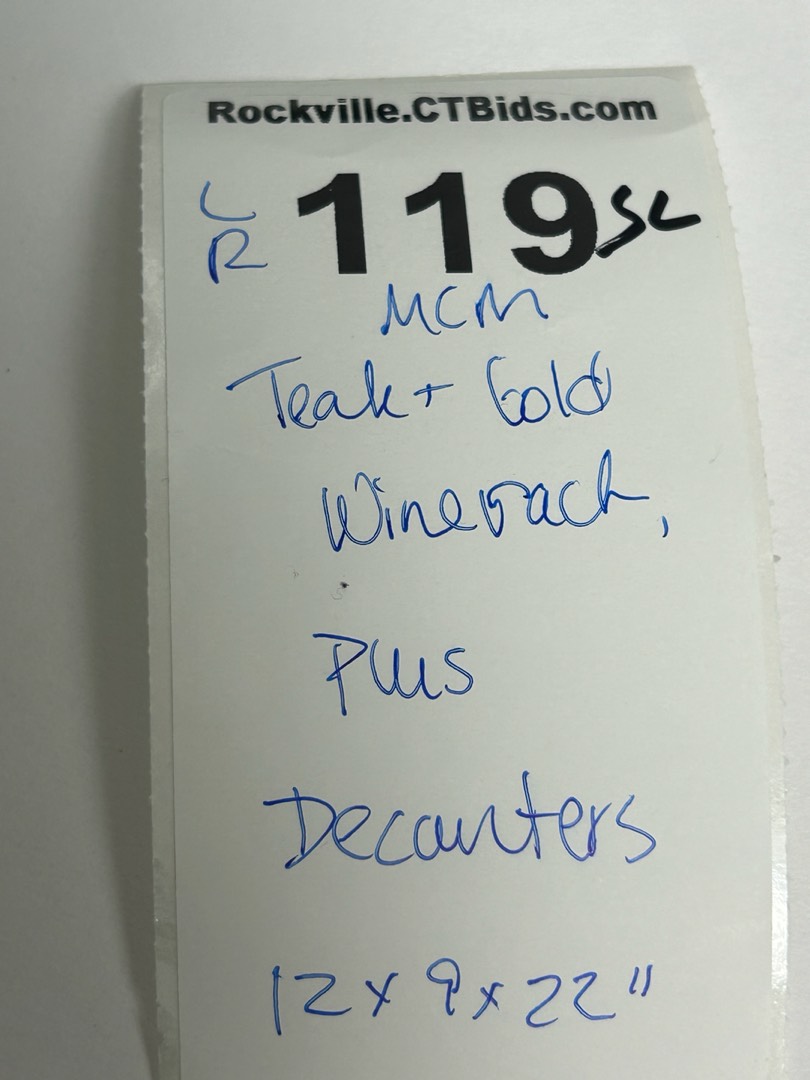 Rockville.CTBids.com
LR 119 SL
MCM
Teak + Gold
Winerack,
Plus
Decanters
12 x 9 x 22"